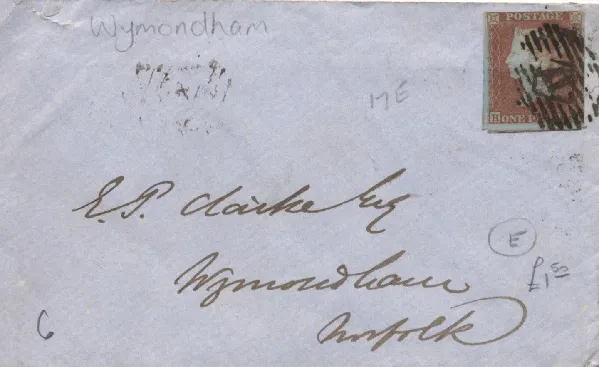 Wymondham
POSTAGE
17 E
ONE P
E. P. Clarke Esq
E
Wymondham
£1 50
Norfolk
6